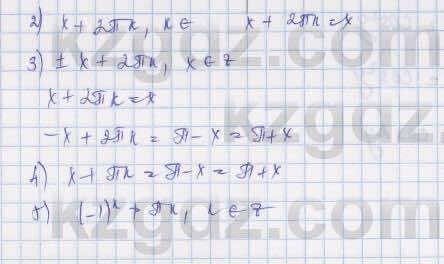 2) x + 2πk, k ∈ x + 2πk = x
3) ± x + 2πk, k ∈ z
x + 2πk = x
-x + 2πk = π - x = π + x
4) x + πk = π - x = π + x
5) (-1)^k + πk, k ∈ z
kzgdz.com
kzgdz.com